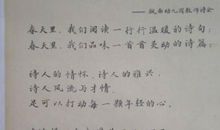 幼儿园教师诗会
春天里，我们阅读一行行温暖的诗句；
春天里，我们品味一首首灵动的诗篇；
诗人的情怀、诗人的雅兴，
诗人风流与才情
足可以打动每一颗年轻的心。